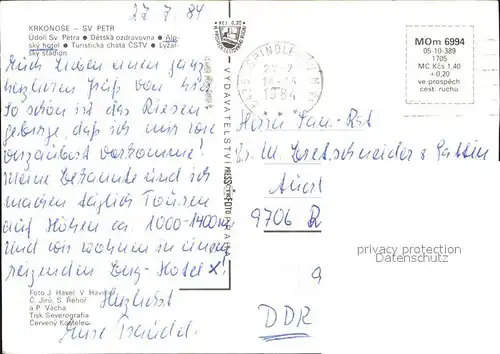 27.7.84
KRKONOŠE – SV PETR
Údolí Sv. Petra ● Dětská ozdravovna ● Alp-
ský hotel ● Turistická chata ČSTV ● Lyžař-
ský stadion
Euch Lieben einen ganz
herzlichen Gruß von hier.
So schön ist das Riesen-
gebirge, daß ich mir wie
verzaubert vorkomme!
Meine Bekannte und ich
machen täglich Touren
auf Höhen ca. 1000-1400 m
und wir wohnen in einem
reizenden Berg-Hotel x!
Herzlichst
Eure
Foto J. Havel, V. Havel,
Č. Jirů, S. Řehoř
a P. Vácha
Tisk Severografia
Červený Kostelec
VYDAVATELSTVÍ PRESSFOTO PRAHA
Kčs 0,20
27.-7.
1984
MOm 6994
05-10-389
1705
MC Kčs 1,40
+0,20
ve prospěch
cest. ruchu
Herrn
Dr. M. Bretschneider &
9706 R
DDR
privacy protection
www.ansichtskarten-center.de